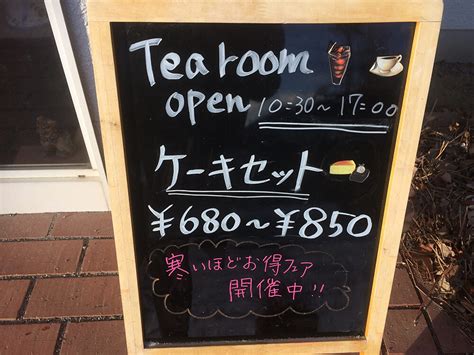 Tea room
open 10:30~17:00
ケーキセット
¥680~¥850
寒いほどお得フェア
開催中!!